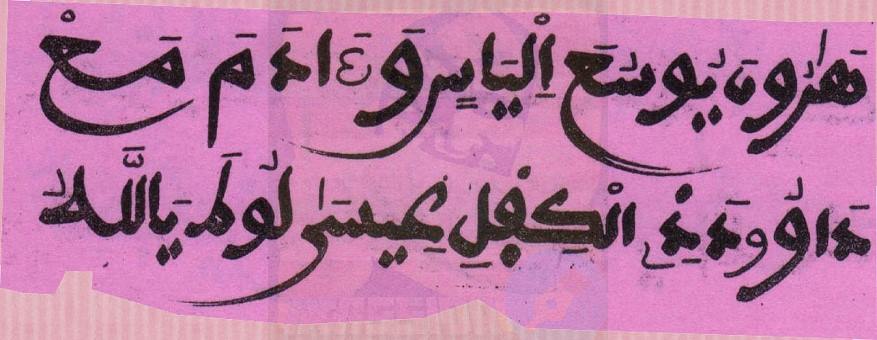 هَٰرُونَ يُوسَعَ اِلْيَاسٍ وَءَادَمَ مَعْ
دَاوُودَ ذِے الْكِفْلِ عِيسَىٰ لُوطَ يَاللَّهُ